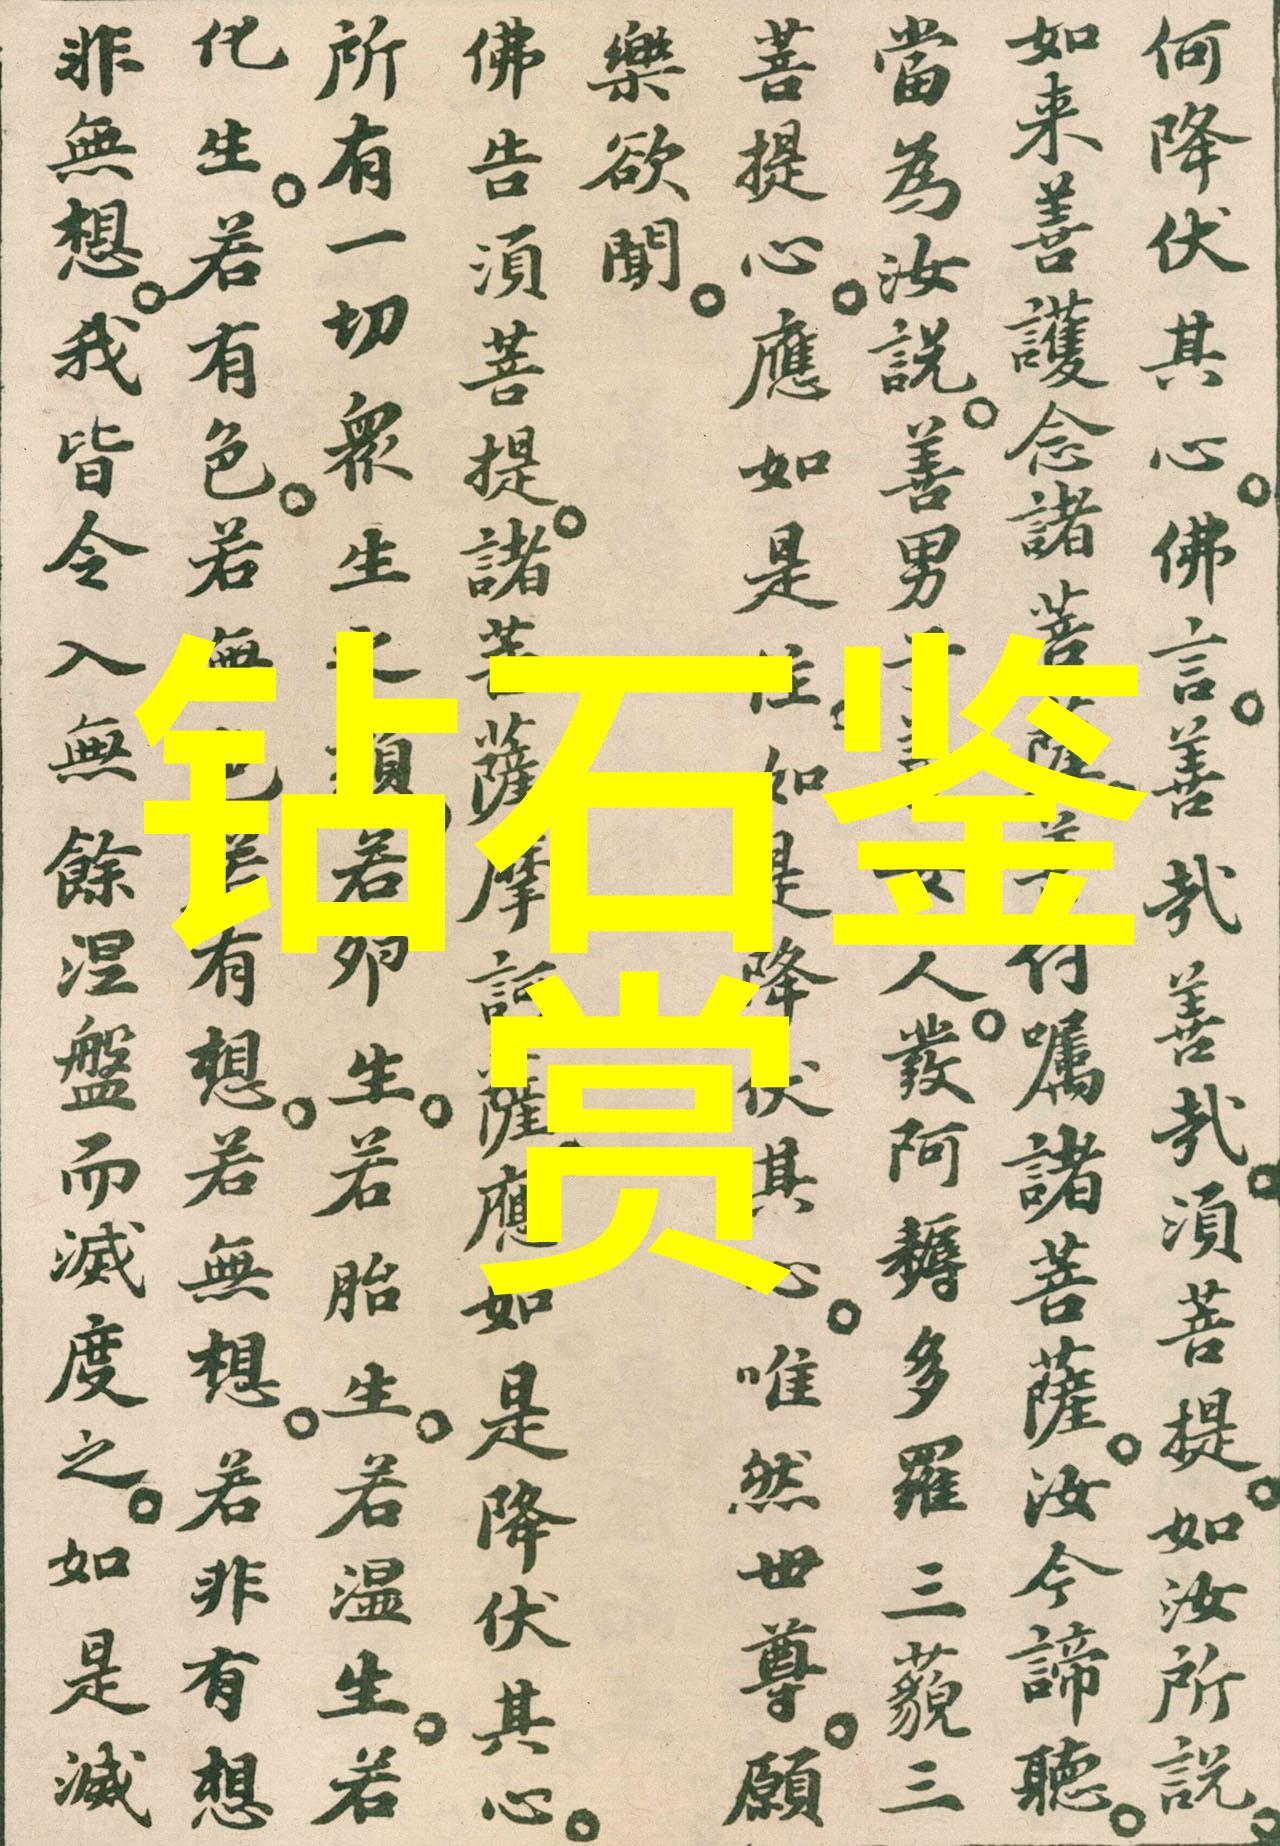 何降伏其心。佛言。善哉善哉。須菩提。如汝所說。
如来善護念諸菩薩。善付囑諸菩薩。汝今諦聽。
當為汝說。善男子善女人。發阿耨多羅三藐三
菩提心。應如是住。如是降伏其心。唯然世尊。願
樂欲聞。
佛告須菩提。諸菩薩摩訶薩。應如是降伏其心。
所有一切眾生之類。若卵生。若胎生。若温生。若
化生。若有色。若無色。若有想。若無想。若非有想
非無想。我皆令入無餘涅盤而滅度之。如是滅
钻石鉴
赏